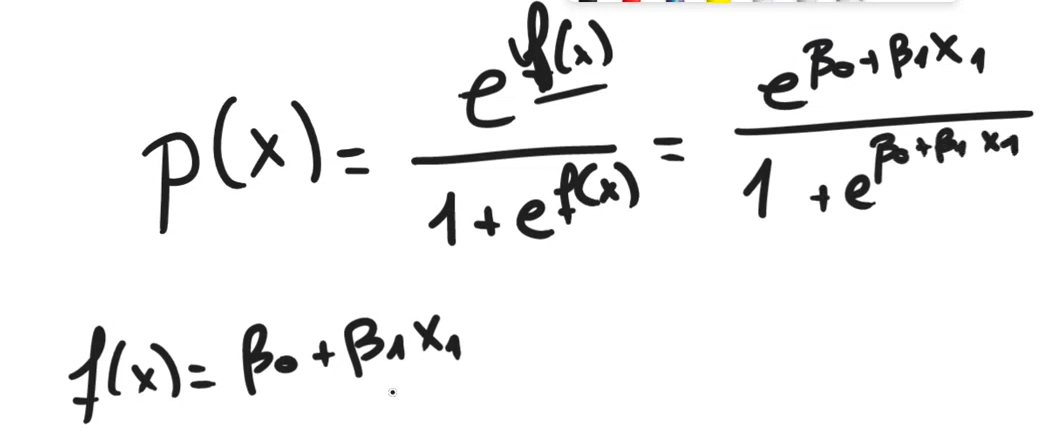 p(x) = e^{f(x)} / (1 + e^{f(x)}) = e^{β₀ + β₁x₁} / (1 + e^{β₀ + β₁x₁})
f(x) = β₀ + β₁x₁